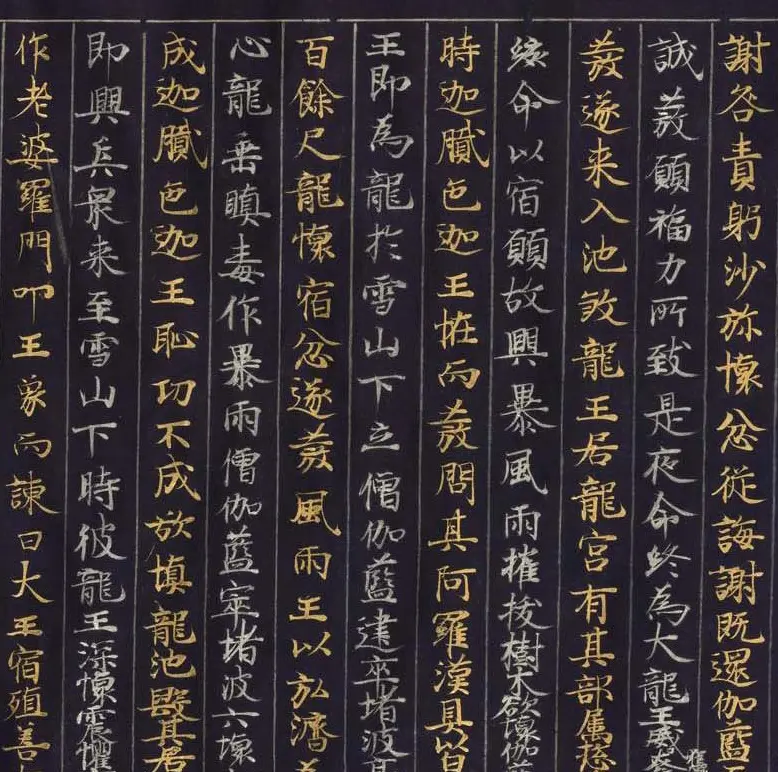 謝咎責躬沙弥懷忿從誨謝既還伽藍
誠發願福力所致是夜命終為大龍王威
發遂来入池煞龍王居龍宮有其部属惣
総命以宿願故興暴風雨摧拔樹木欲壊伽藍
時迦膩色迦王恠而發問其阿羅漢具以白
王即為龍於雪山下立僧伽藍建窣堵波高
百餘尺龍懷宿忿遂發風雨王以弘濟為
心龍乗瞋毒作暴雨僧伽藍窣堵波六壊
成迦膩色迦王恥功不成欲填龍池毀其居
即興兵衆来至雪山下時彼龍王深懷震懼
作老婆羅門叩王象而諫曰大王宿殖善